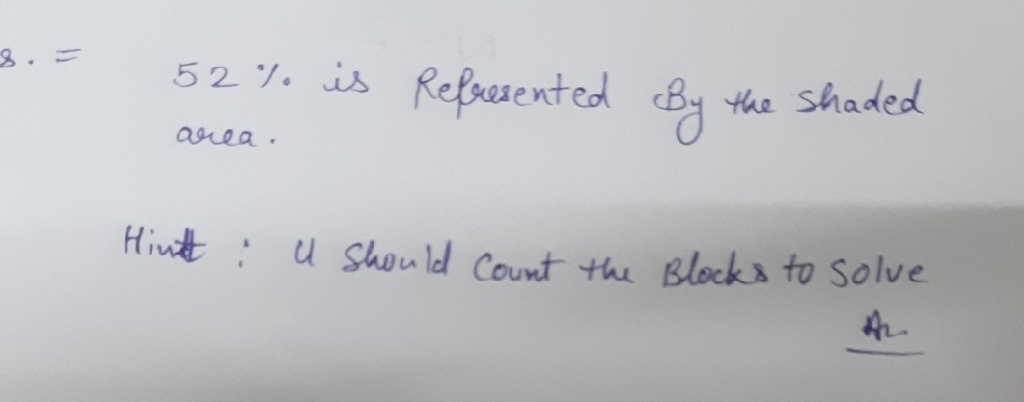 8. =
52 % is Represented By the shaded
area.
Hint : U Should Count the Blocks to Solve